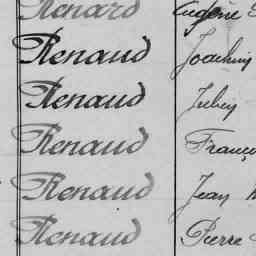 Renard Eugène
Renaud Joachim
Renaud Jules
Renaud Franço
Renaud Jean
Renaud Pierre